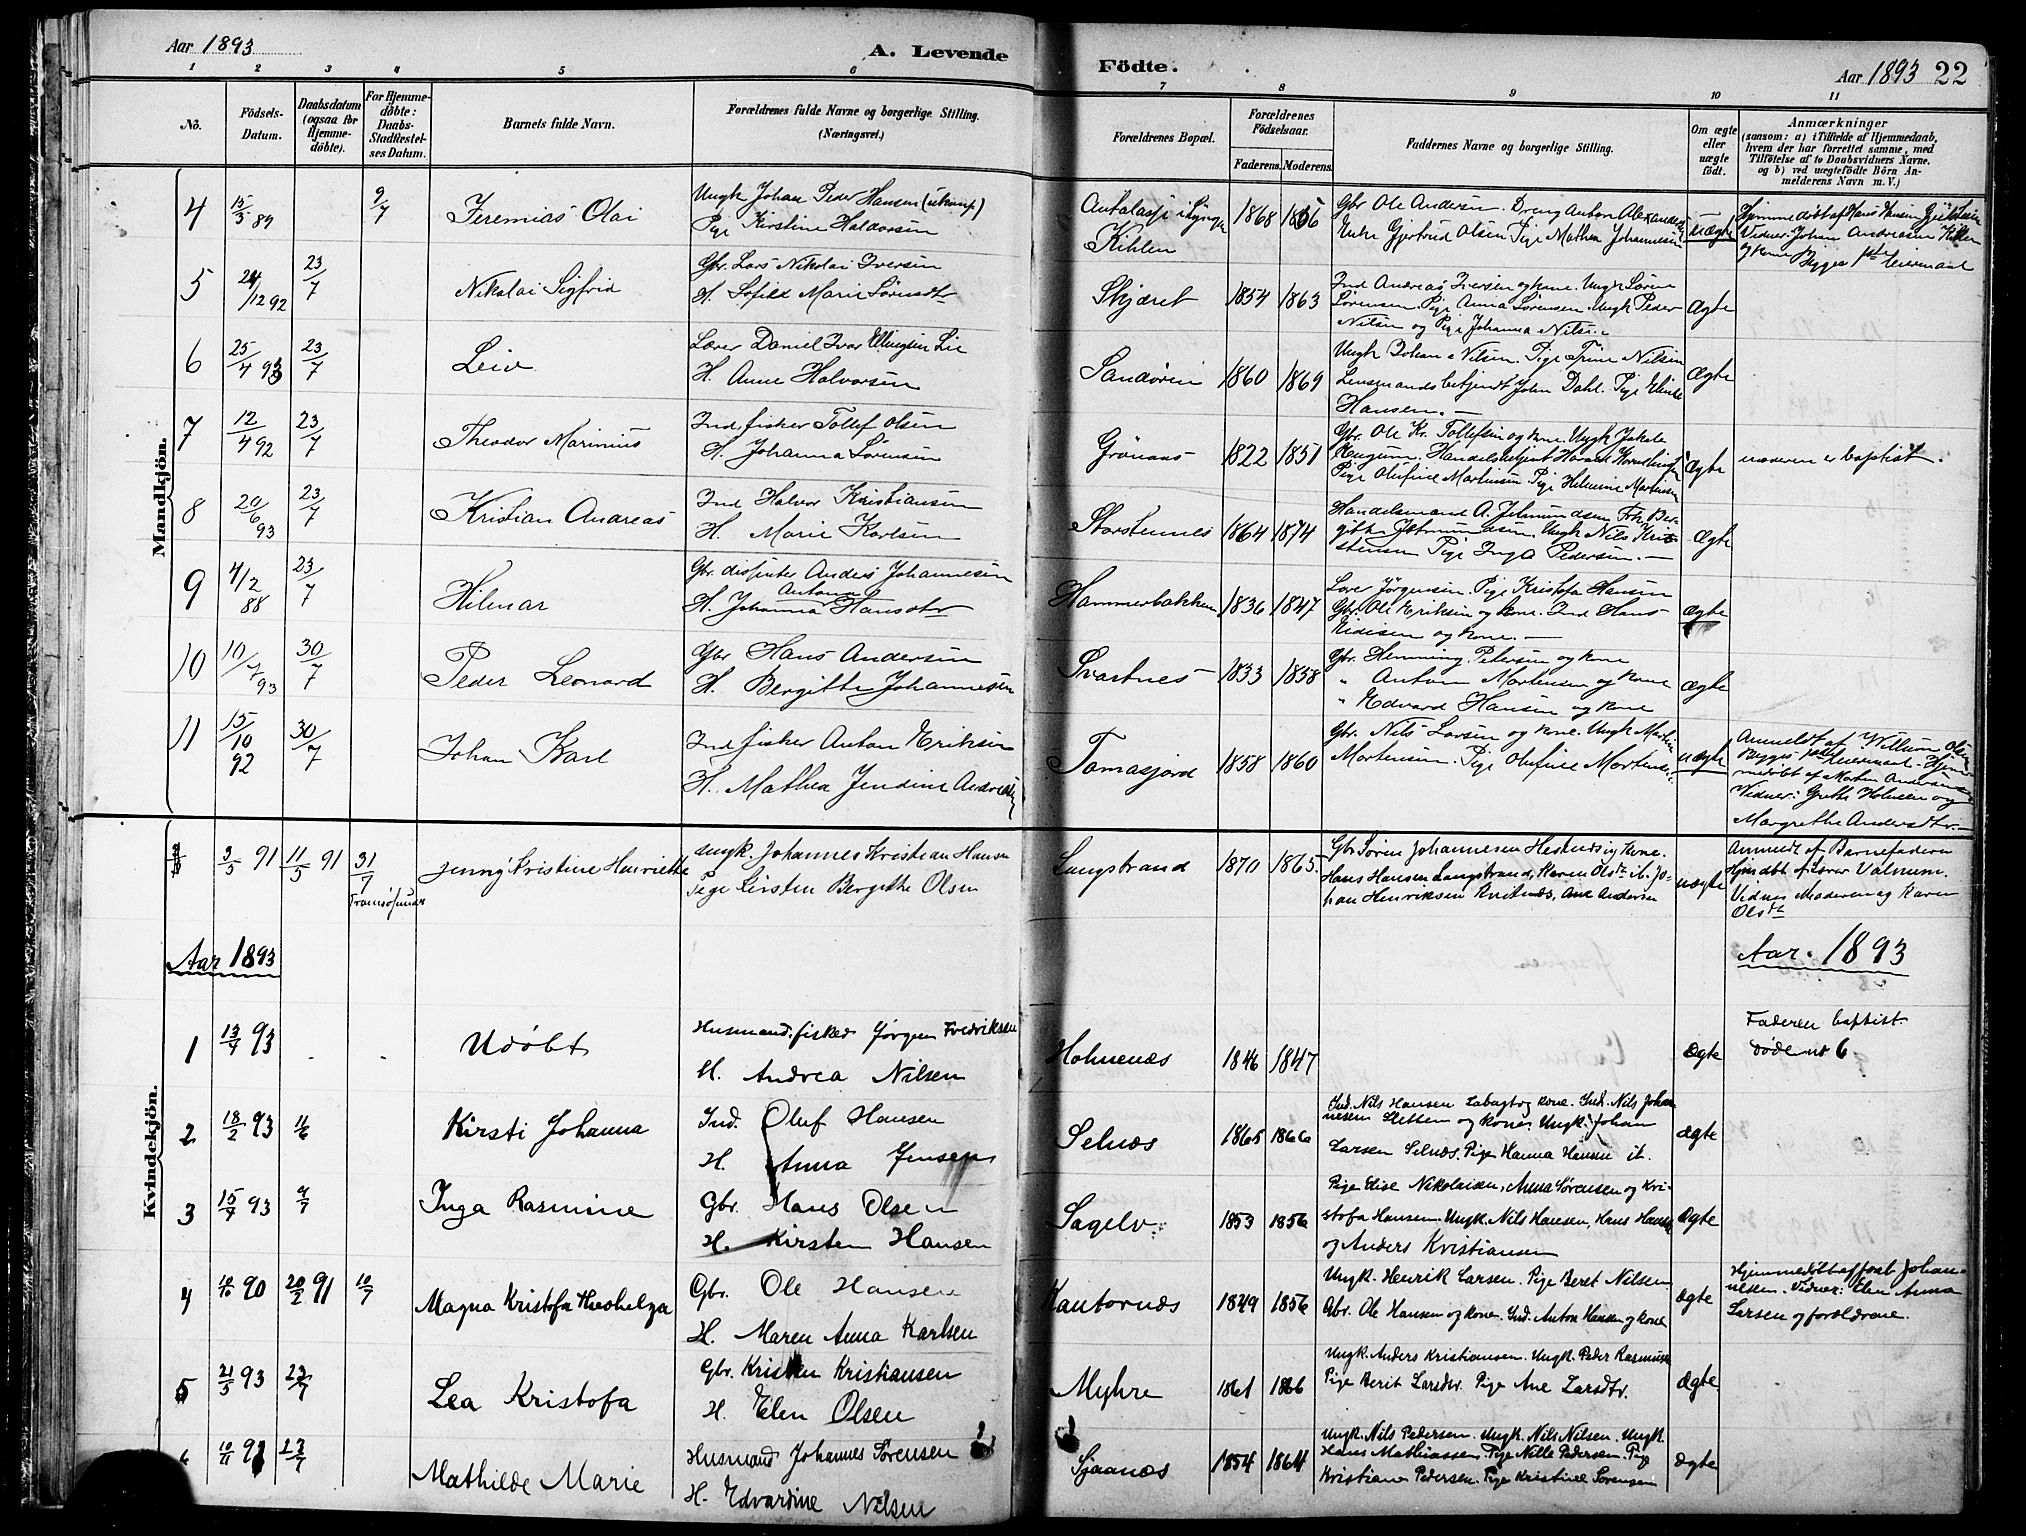 Aar 1893
A. Levende
Födte.
Aar 1893 22
1 2 3 4 5 6 7 8 9 10 11
No.
Födsels-
Datum.
Daabsdatum
(ogsaa for
Hjemme-
döbte).
For Hjemme-
döbte:
Daabs-
Stadfestel-
ses Datum.
Barnets fulde Navn.
Forældrenes fulde Navne og borgerlige Stilling.
(Næringsvei.)
Forældrenes Bopæl.
Forældrenes
Födselsaar.
Faderens. Moderens.
Faddernes Navne og borgerlige Stilling.
Om ægte
eller
uægte
födt.
Anmærkninger
(saasom: a) i Tilfælde af Hjemmedaab,
hvem der har forrettet samme, med
Tilföielse af to Daabsvidners Navne.
og b) ved uægtefödte Börn An-
melderens Navn m. V.)
Mandkjön.
4 15/3 89 9/7 Jeremias Olai
Ungk Johan Peder Hansen
Pige Kirstine Haldorsen
Kihlen
1868 1856
Gbr Ole Andersen. Dreng Anton Alexandersen
Enke Gjertrud Olsen Pige Mathea Johannesen
uægte
Hjemmedöbt af Hans Hansen
Vidner: Johan Andreasen Kihlen
og kone Begges 1ste leiermaal
5 24/12 92 23/7 Nikolai Sigfrid
Gbr. Lars Nikolai Iversen
H. Sofild Marie Sörensdtr
Skjæret 1854 1863
Ind Andreas Iversen og kone. Ungk Sören
Sörensen. Pige Anna Sörensen. Ungk Peder
Nilsen og Pige Johanna Nilsen
Ægte
6 25/4 93 23/7 Leiv
Lærer Daniel Ivar Ellingsen Lie
H. Anne Halvorsen
Sandören 1860 1869
Ungk Johan Nilsen. Pige Trine Nilsen
Lensmandsbetjent John Dahl. Pige
Hansen. —
Ægte
7 12/4 92 23/7 Theodor Marinius
Ind fisker Tollef Olsen
H. Johanna Sörensen
Grönaas 1822 1851
Gbr. Ole Kr. Tollefsen og kone. Ungk Jakob
Handelsbetjent
Pige Olufine Mortensen Pige Helmine Mortensen
Ægte
moderen er baptist.
8 20/6 93 23/7 Kristian Andreas
Ind Halvor Kristiansen
H. Marie Karlsen
Storstennes 1864 1874
Handelsmand A. Jetmundsen Frk Ber-
githe Jetmundsen. Ungk Nils Kri-
stensen Pige Inga Pedersen. —
Ægte
9 4/2 88 23/7 Hilmar
Gbr. dissenter Anders Johannesen
Antona
H. Johanna Hansdtr
Hammerbakken 1836 1847
Lærer Jörgensen. Pige Kristofa Hansen
Gbr. Ole Eriksen og kone. Ind Hans
Eidisen og kone. —
ægte
10 10/7 93 30/7 Peder Leonard
Gbr Hans Andersen
H. Bergitte Johannesen
Svartnes 1833 1838
Gbr. Henning Petersen og kone
" Anton Mortensen og kone
" Edvard Hansen og kone
Ægte
11 15/10 92 30/7 Johan Karl
Ind fisker Anton Eriksen
H. Mathea Jendine Andreasen
Tamasjord 1858 1860
Gbr. Nils Larsen og kone. Ungk Martin
Mortensen. Pige Olufine Mortensen
uægte
Anmeldt af Willum Olsen
Begges leiermaal. Hjem-
medöbt af Andersen
Vidner: Grethe Holmsen og
Margrethe Andersdtr. —
3/5 91 11/5 91 31/7 Jenny Kristine Henriette
Ungk. Johannes Kristian Hansen
Pige Kirsten Bergithe Olsen
Langstrand 1870 1865.
Gbr Sören Johannesen Hestnes og Kone.
Hans Hansen Langstrand, Karen Olsdtr ib. Jo-
han Henriksen Kvitnæs, Ane Andersen
uægte
Anmeldt af Barnefaderen
Hjdöbt af Lærer Valnum.
Vidner Moderen og Karen
Olsdtr
Aar 1893
Aar. 1893
Kvindekjön.
1 13/4 93 Udöbt
Husmand. fisker Jörgen Fredriksen
H. Andrea Nilsen
Holmenæs 1846 1847
Ægte
Faderen baptist.
döde no 6
2 18/2 93 11/6 Kirsti Johanna
Ind. Oluf Hansen
H. Anna Jensen
Selnæs 1865 1866
Ind. Nils Hansen Labugt og kone. Ind. Nils Johan-
nesen Sletten og kone. Ungk. Johan
Larsen Selnæs. Pige Hanna Hansen ib.
ægte
3 15/4 93 9/7 Inga Rasmine
Gbr. Hans Olsen
H. Kirsten Hansen
Sagelv. 1853 1856
Pige Elise Nikolaisen, Anna Sörensen og Kri-
stofa Hansen. Ungk. Nils Hansen, Hans Hansen
og Anders Kristiansen
Ægte
4 10/10 90 20/2 91 10/7 Magna Kristofa Theahelga
Gbr. Ole Hansen
H. Maren Anna Karlsen
Kantornæs 1849 1856
Ungk. Henrik Larsen. Pige Beret Nilsen
Gbr. Ole Hansen og kone. Ind. Anton Hansen og kone
ægte
Hjemmedöbt af Johan-
nesen. Vidner: Elen Anna
Larsen og forældrene.
5 21/5 93 23/7 Lea Kristofa
Gbr. Kristen Kristiansen
H. Elen Olsen
Myhre 1861 1866
Ungk. Anders Kristiansen. Ungk. Peder Rasmussen
Pige Berit Larsdtr. Pige Ane Larsdtr.
Ægte
6 10/11 91 23/7 Mathilde Marie
Husmand Johannes Sörensen
H. Edvardine Nilsen
Sjaanæs 1854 1864
Ungk. Nils Pedersen. Ungk. Nils Nilsen. Ungk.
Hans Mathiassen. Pige Nille Pedersen. Pige
Kristiane Pedersen. Pige Kristine Sörensen
ægte